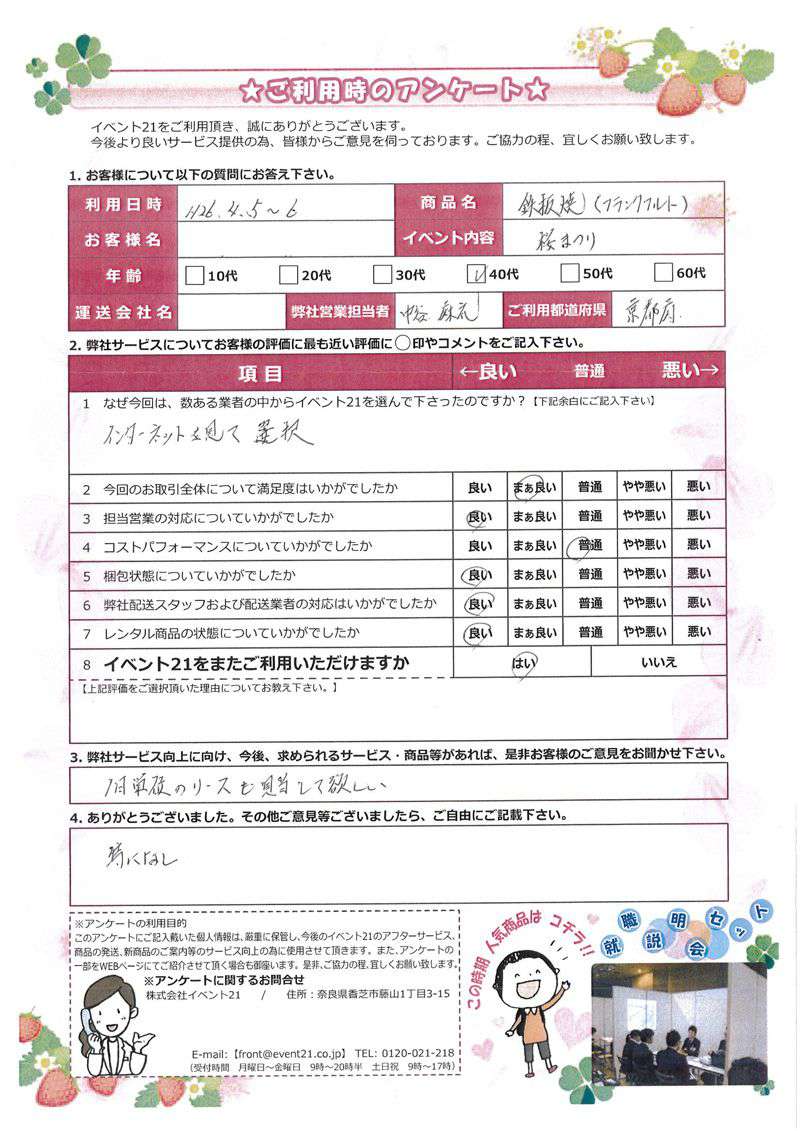 ★ご利用時のアンケート★
イベント21をご利用頂き、誠にありがとうございます。
今後より良いサービス提供の為、皆様からご意見を伺っております。ご協力の程、宜しくお願い致します。
1. お客様について以下の質問にお答え下さい。
利用日時 H26.4.5〜6 商品名 鉄板焼(フランクフルト)
お客様名 イベント内容 桜まつり
年齢 10代 20代 30代 40代 50代 60代
運送会社名 弊社営業担当者 ご利用都道府県 京都府.
2. 弊社サービスについてお客様の評価に最も近い評価に◯印やコメントをご記入下さい。
項目 ←良い 普通 悪い→
1 なぜ今回は、数ある業者の中からイベント21を選んで下さったのですか？【下記余白にご記入下さい】
インターネットを見て 選択
2 今回のお取引全体について満足度はいかがでしたか 良い まぁ良い 普通 やや悪い 悪い
3 担当営業の対応についていかがでしたか 良い まぁ良い 普通 やや悪い 悪い
4 コストパフォーマンスについていかがでしたか 良い まぁ良い 普通 やや悪い 悪い
5 梱包状態についていかがでしたか 良い まぁ良い 普通 やや悪い 悪い
6 弊社配送スタッフおよび配送業者の対応はいかがでしたか 良い まぁ良い 普通 やや悪い 悪い
7 レンタル商品の状態についていかがでしたか 良い まぁ良い 普通 やや悪い 悪い
8 イベント21をまたご利用いただけますか はい いいえ
【上記評価をご選択頂いた理由についてお教え下さい。】
3. 弊社サービス向上に向け、今後、求められるサービス・商品等があれば、是非お客様のご意見をお聞かせ下さい。
1日単価のリースも見当して欲しい
4. ありがとうございました。その他ご意見等ございましたら、ご自由にご記載下さい。
特になし
※アンケートの利用目的
このアンケートにご記入戴いた個人情報は、厳重に保管し、今後のイベント21のアフターサービス、
商品の発送、新商品のご案内等のサービス向上の為に使用させて頂きます。また、アンケートの
一部をWEBページにてご紹介させて頂く場合も御座います。是非、ご協力の程、宜しくお願い致します。
※アンケートに関するお問合せ
株式会社イベント21 / 住所：奈良県香芝市藤山1丁目3-15
E-mail:【front@event21.co.jp】 TEL: 0120-021-218
(受付時間 月曜日〜金曜日 9時〜20時半 土日祝 9時〜17時)
この時期 人気商品は コチラ!!
就職説明会セット